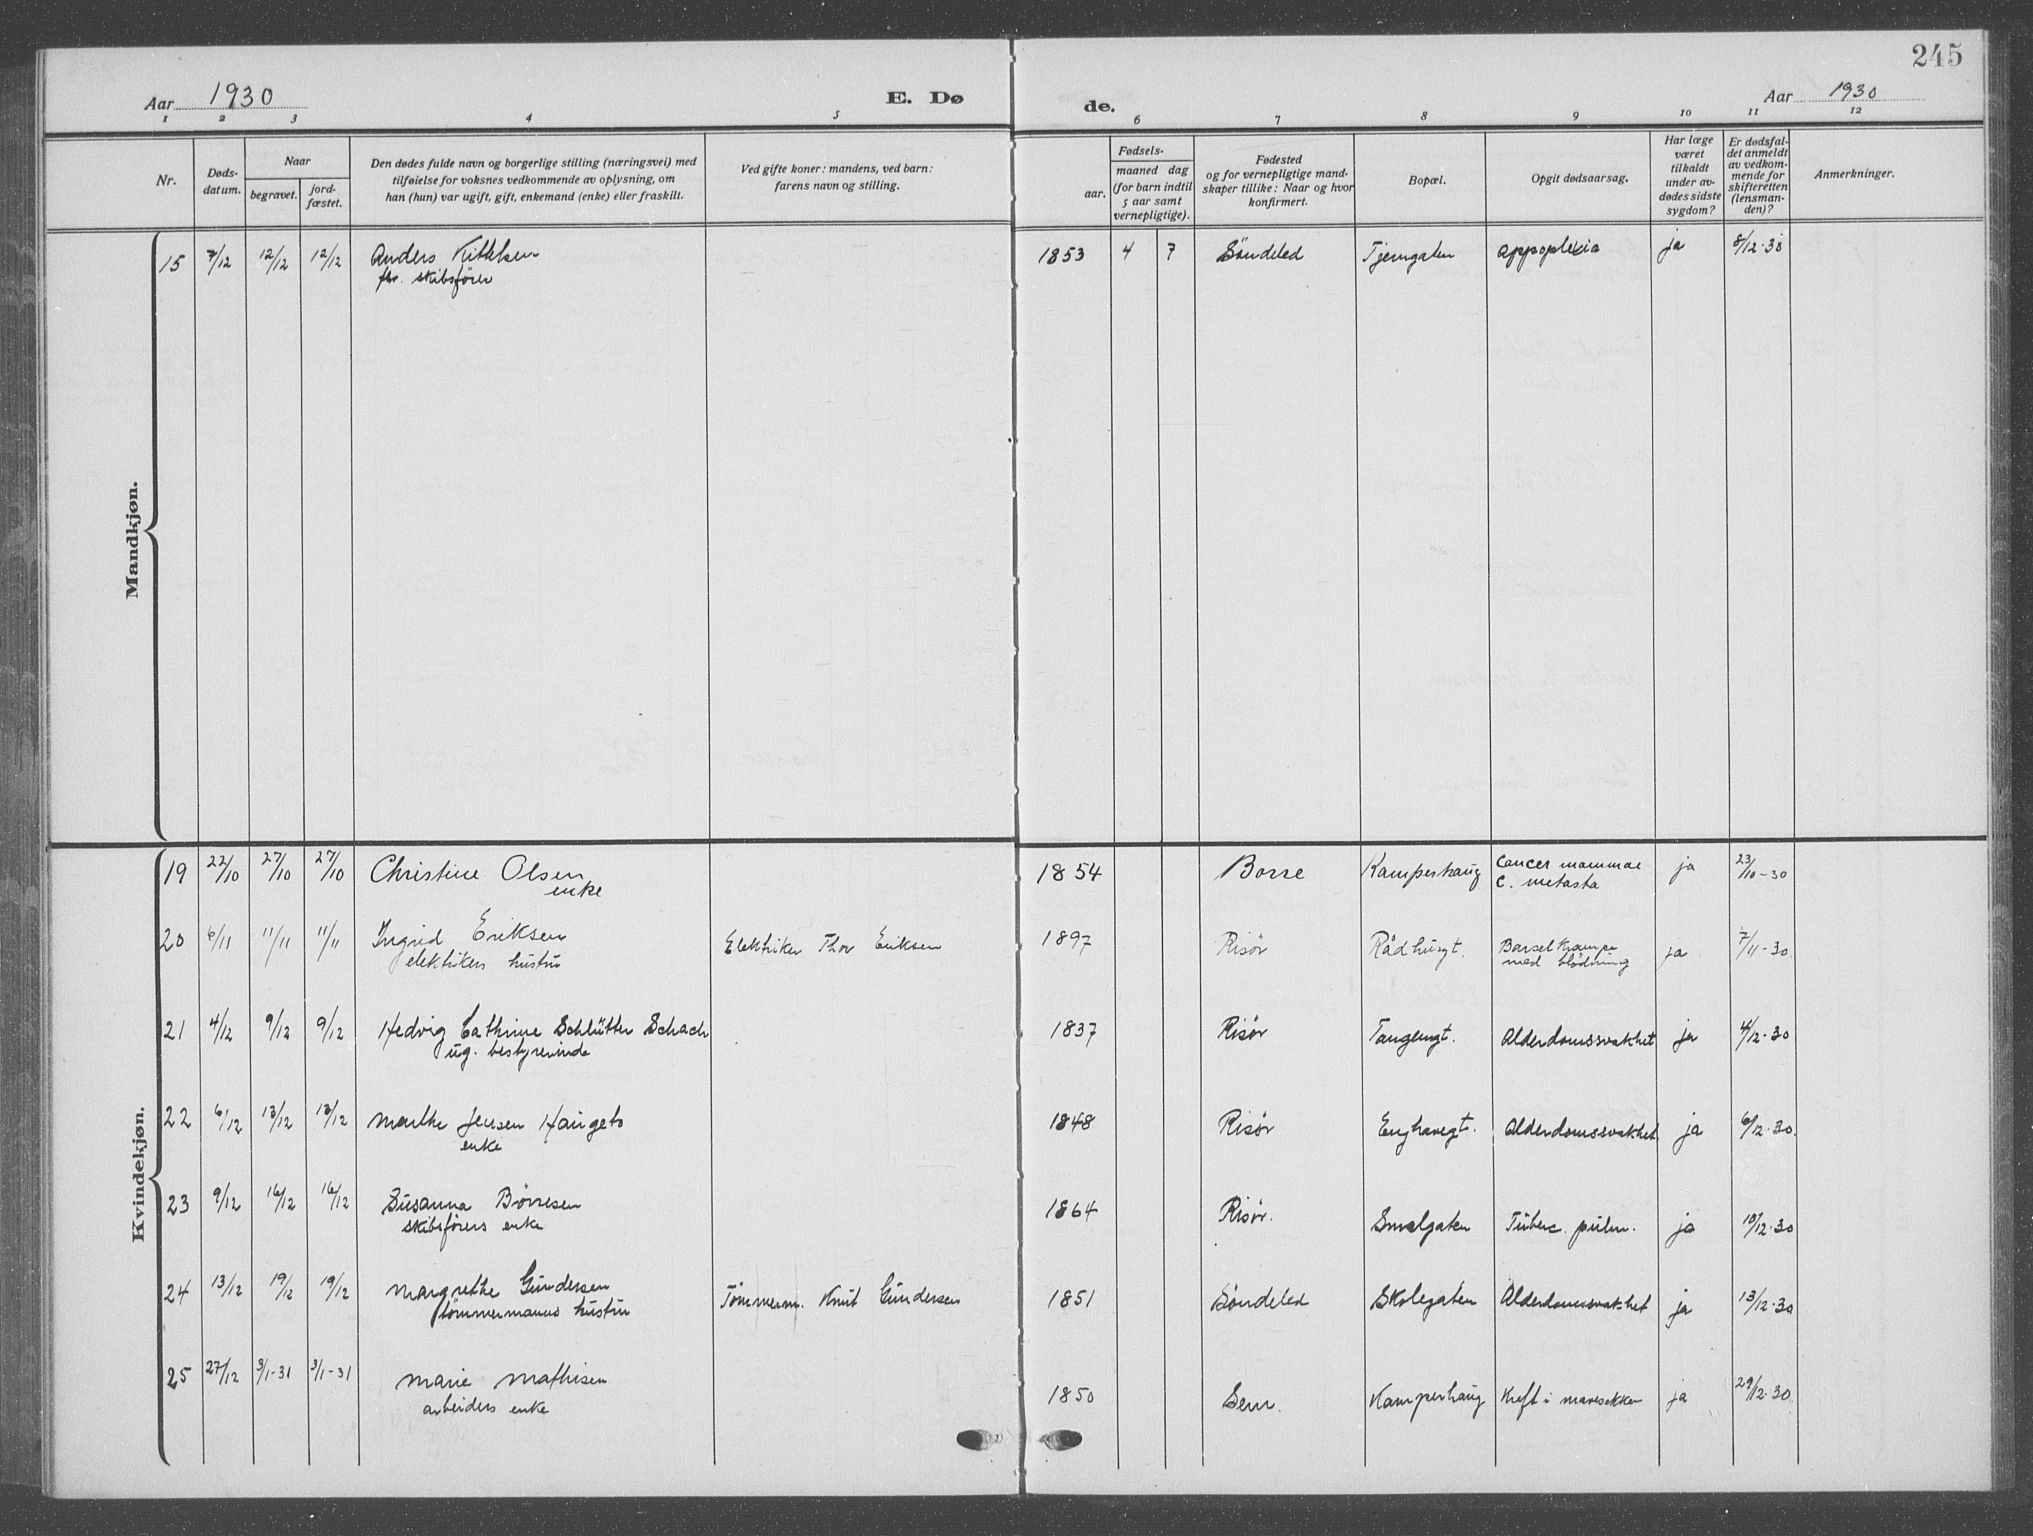 245
Aar 1930 E. Dø de. Aar 1930
1 2 3 4 5 6 7 8 9 10 11 12
Nr.
Døds-
datum.
Naar
begravet.
jord-
fæstet.
Den dødes fulde navn og borgerlige stilling (næringsvei) med
tilføielse for voksnes vedkommende av oplysning, om
han (hun) var ugift, gift, enkemand (enke) eller fraskilt.
Ved gifte koner: mandens, ved barn:
farens navn og stilling.
Fødsels-
aar.
maaned dag
(for barn indtil
5 aar samt
vernepligtige).
Fødested
og for vernepligtige mand-
skaper tillike: Naar og hvor
konfirmert.
Bopæl.
Opgit dødsaarsag.
Har læge
været
tilkaldt
under av-
dødes sidste
sygdom?
Er dødsfal-
det anmeldt
av vedkom-
mende for
skifteretten
(lensman-
den)?
Anmerkninger.
Mandkjøn.
15 7/12 12/12 12/12 Anders Kittelsen 1853 4 7 Söndeled Tjerngaten appoplexia ja 8/12-30
fhv. skibsförer
Kvindekjøn.
19 22/10 27/10 27/10 Christine Olsen 1854 Borre Kamperhaug Cancer mammae ja 23/10-30
enke C. metasta
20 6/11 11/11 11/11 Ingrid Eriksen Elektriker Thor Eriksen 1897 Risör Rådhusgt. Barselkrampe ja 7/11-30
elektrikers hustru med blödning
21 4/12 9/12 9/12 Hedvig Cathrine Schlütter Schach 1837 Risör Tangengt. Alderdomssvakhet ja 4/12-30
ug. bestyrerinde
22 6/12 13/12 13/12 Marthe Jensen Haugeto 1848 Risör Enghavegt. Alderdomssvakhet ja 6/12-30
enke
23 9/12 16/12 16/12 Susanna Börresen 1864 Risör. Smalgaten Tuberc. pulm. ja 10/12-30
skibsförers enke
24 13/12 19/12 19/12 Margrethe Gundersen Tömmerm. Knut Gundersen 1851 Söndeled Skolegaten Alderdomssvakhet ja 13/12-30
tömmermanns hustru
25 27/12 3/1-31 3/1-31 Marie Mathisen 1850 Sem. Kamperhaug Kreft i mavesekken ja 29/12-30
arbeiders enke